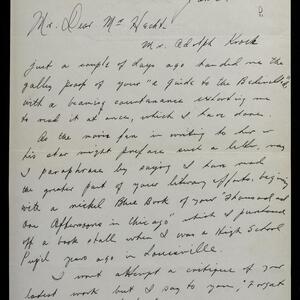 My Dear Mr Hecht
Mr. Adolph Kroch
just a couple of days ago handed me the
galley proof of your "a Guide to the Bedeviled",
with a beaming countenance exhorting me
to read it at once, which I have done.
As the movie fan in writing to her or
his star might preface such a letter, may
I paraphrase by saying I have read
the greater part of your literary efforts, beginning
with a nickel Blue Book of your "Thousand and
One Afternoons in Chicago" which I purchased
off a book stall when I was a High School
Pupil years ago in Louisville.
I wont attempt a critique of your
latest work but I say to you, "Forget